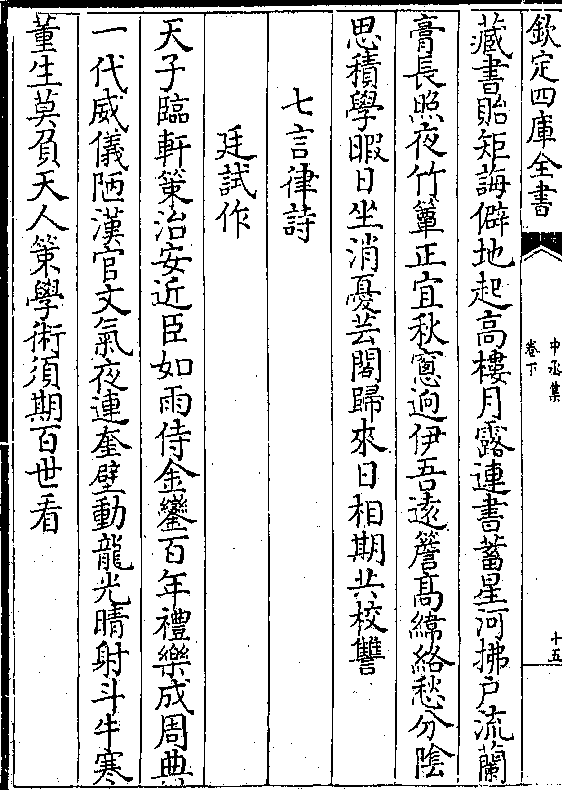 欽定四庫全書
中丞集
卷下
十五
藏書貽矩誨僻地起高樓月露連書蓄星河拂戶流蘭
膏長照夜竹簟正宜秋窻迥伊吾遠簷髙綿絡愁分陰
思積學暇日坐消憂芸閣歸來日相期共校讐
七言律詩
廷試作
天子臨軒策治安近臣如雨侍金鑾百年禮樂成周典
一代威儀陋漢官文氣夜連奎壁動龍光晴射斗牛寒
董生莫負天人策學術須期百世看